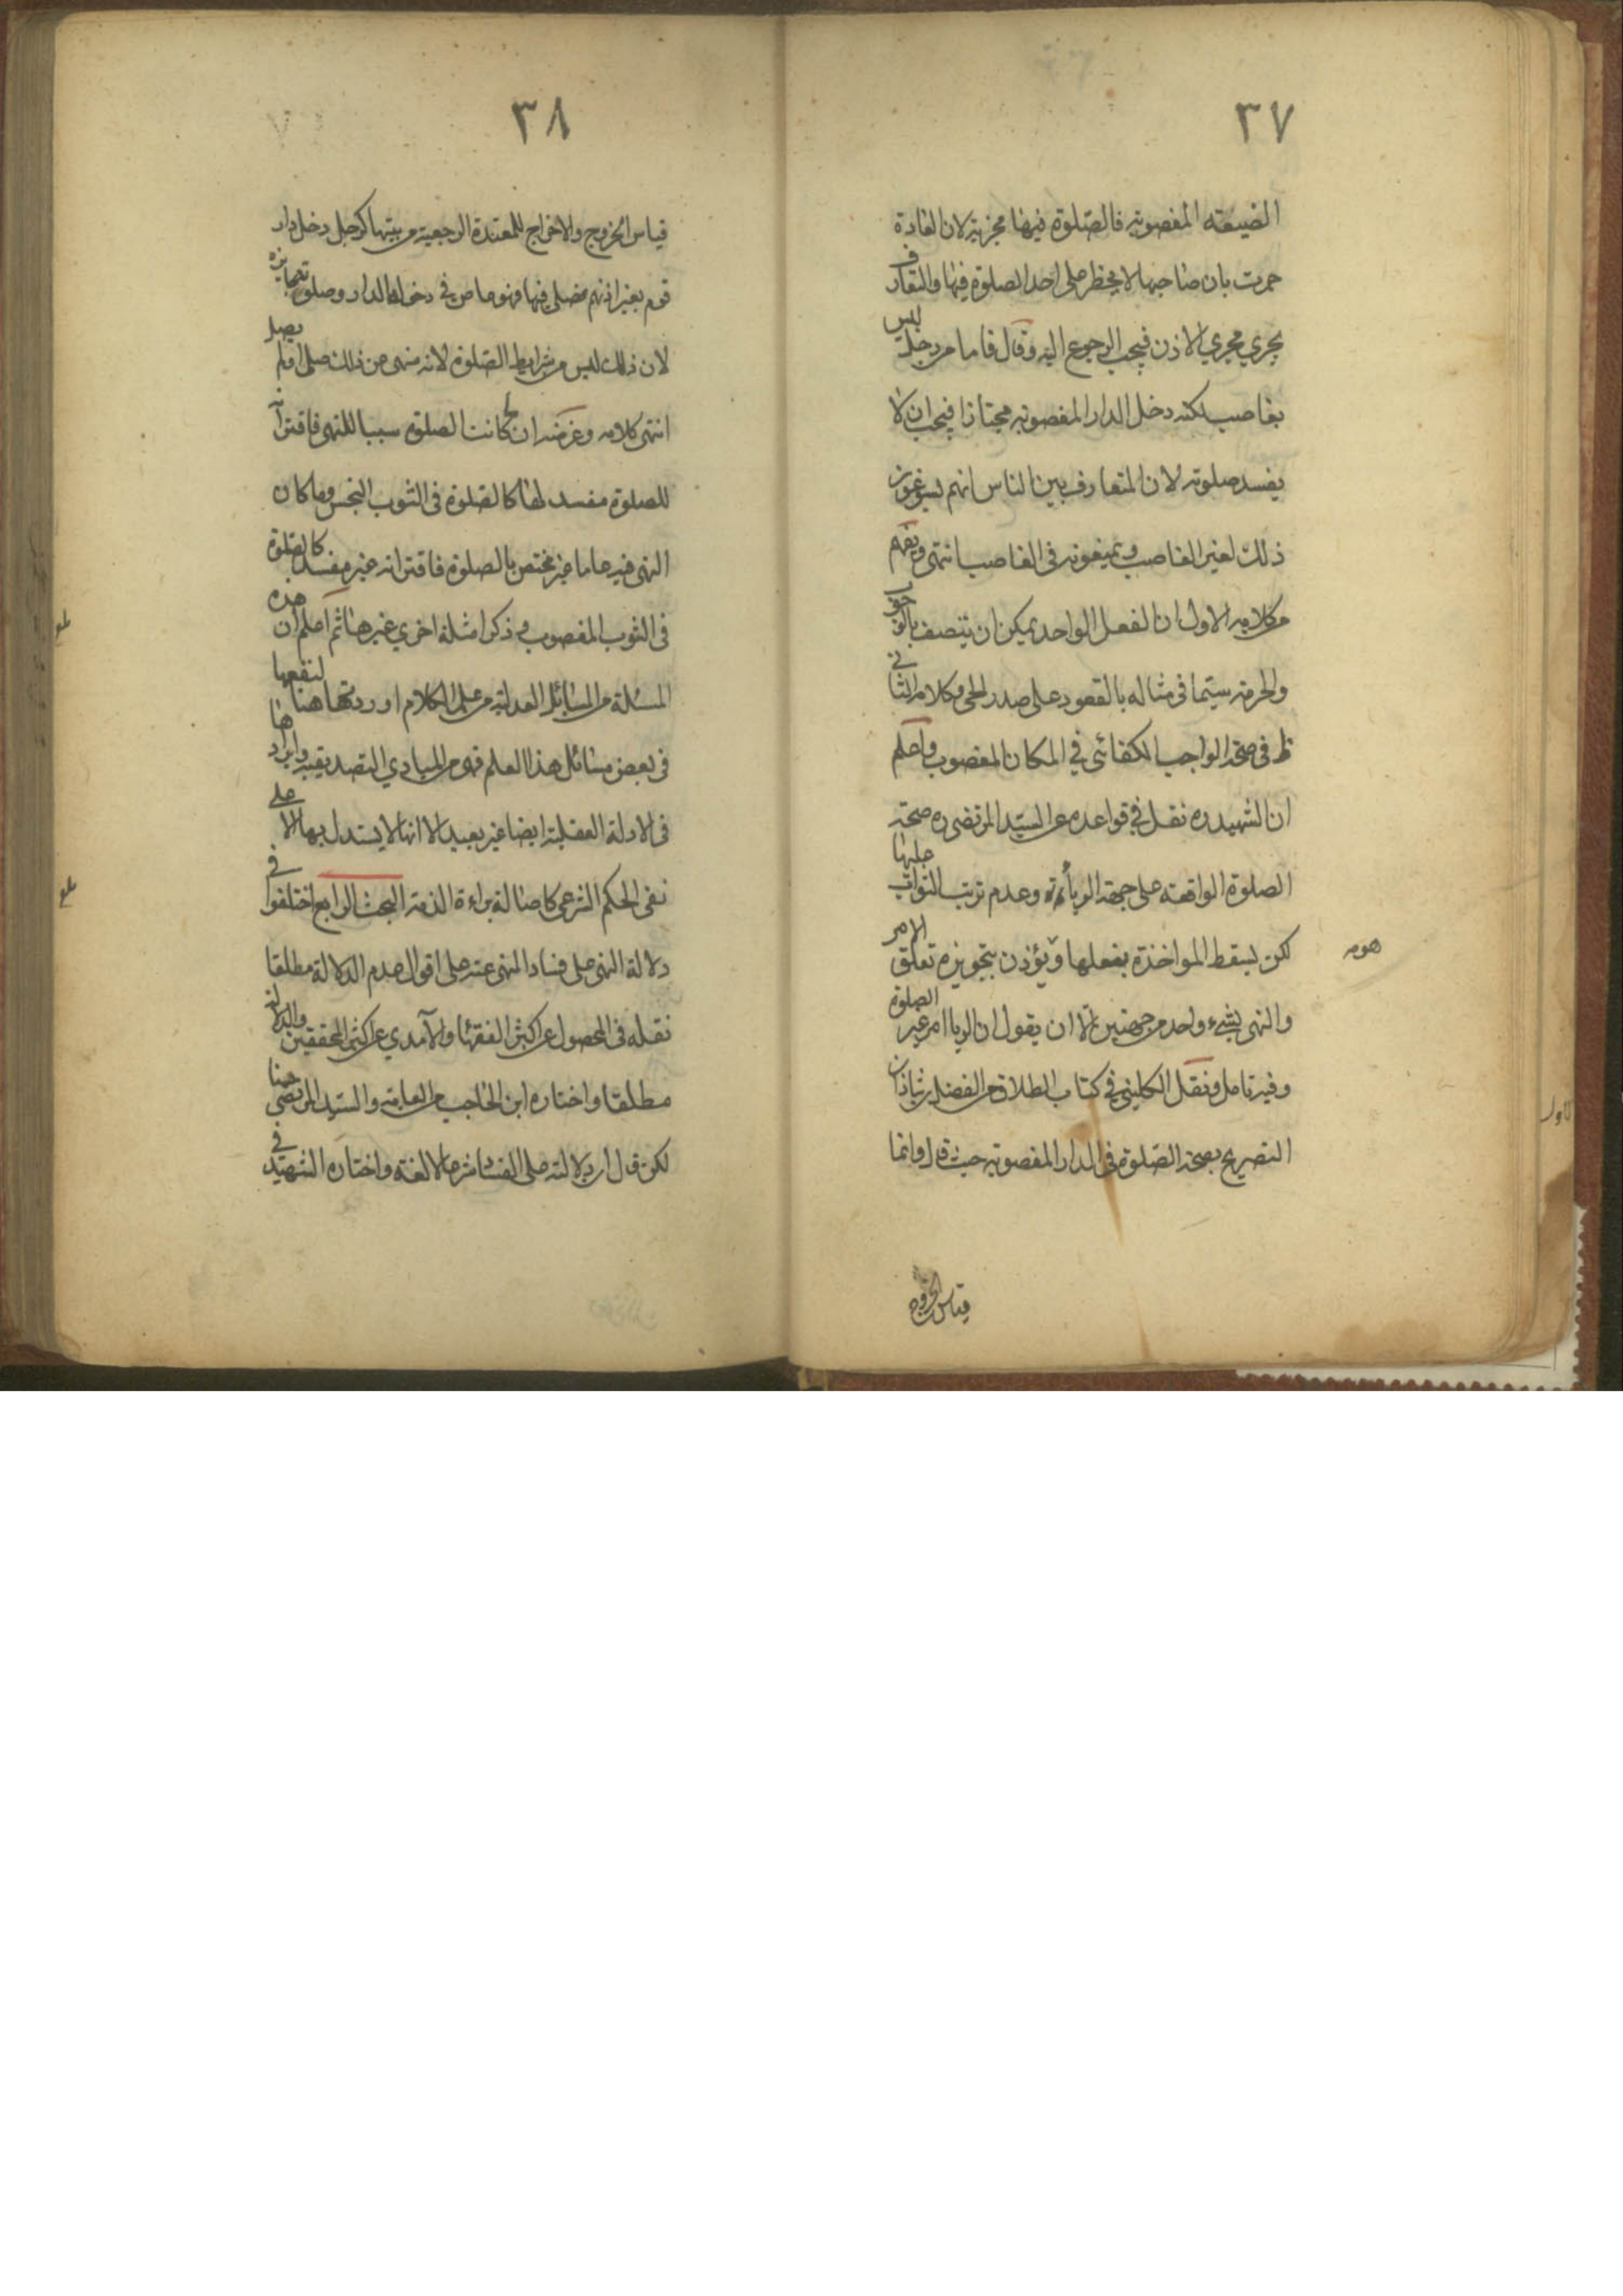 ٣٧
الضيعة المغصوبة فالصلوة فيها مجزية لان العادة
جرت بان صاحبها لا يحظر على احد الصلوة فيها والتعارف
يجري مجري الاذن فيجب الرجوع اليه وقال فاما من دخل ليس
بغاصب لكنه دخل الدار المغصوبة مجتازا فيجب ان لا
يفسد صلوته لان المتعارف بين الناس انهم يسوغون
ذلك لغير الغاصب ويمنعونه في الغاصب انتهى ويفهم
من كلامه الاول ان الفعل الواحد يمكن ان يتصف بالوجوب
والحرمة سيما في مثاله بالقعود على صدر الحي وكلامه الثاني
ظ في صحة الواجب الكفائي في المكان المغصوب واعلم
ان الشهيد ره نقل في قواعده عن السيد المرتضى ره صحة
الصلوة الواقعة على جهة الرياء وعدم ترتب الثواب عليها
لكن يسقط المواخذة بفعلها ويؤذن بتجويزه تعلق الامر
هومه
والنهي بشيء واحد من جهتين الا ان يقول ان الريا امر غير الصلوة
وفيه تامل ونقل الكليني في كتاب الطلاق عن الفضل بن شاذان
التصريح بصحة الصلوة في الدار المغصوبة حيث قال وانما
قياس الخروج
٣٨
قياس الخروج والاخراج للمعتدة الرجعية من بيتها كرجل دخل دار
قوم بغير اذنهم فصلى فيها فهو عاص في دخوله الدار وصلوته جايزة
لان ذلك ليس من شرايط الصلوة لانه منهى عن ذلك صلى اولم يصل
انتهى كلامه وغرضه ان كانت الصلوة سببا للنهي فاقترانه
للصلوة مفسد لها كالصلوة في الثوب النجس وما كان
النهي فيه عاما غير مختص بالصلوة فاقترانه غير مفسد كالصلوة
في الثوب المغصوب وذكر امثلة اخري غيرها ثم اعلم ان هذه
المسئلة من المسائل العدلية من علم الكلام اوردتها هنا لنفعها
في بعض مسائل هذا العلم فهي من المبادي التصديقية وايرادها
في الادلة العقلية ايضا غير بعيد الا انها لا يستدل بها الا على
نفي الحكم الشرعي كاصالة براءة الذمة البحث الرابع اختلفوا في
دلالة النهي على فساد المنهى عنه على اقوال عدم الدلالة مطلقا
نقله في المحصول عن اكثر الفقهاء والآمدي عن اكثر المحققين والدلالة
مطلقا واختاره ابن الحاجب من العامة والسيد المرتضى منا
لكن قال ان دلالته على الفساد شرعا لا لغة واختاره الشهيد في